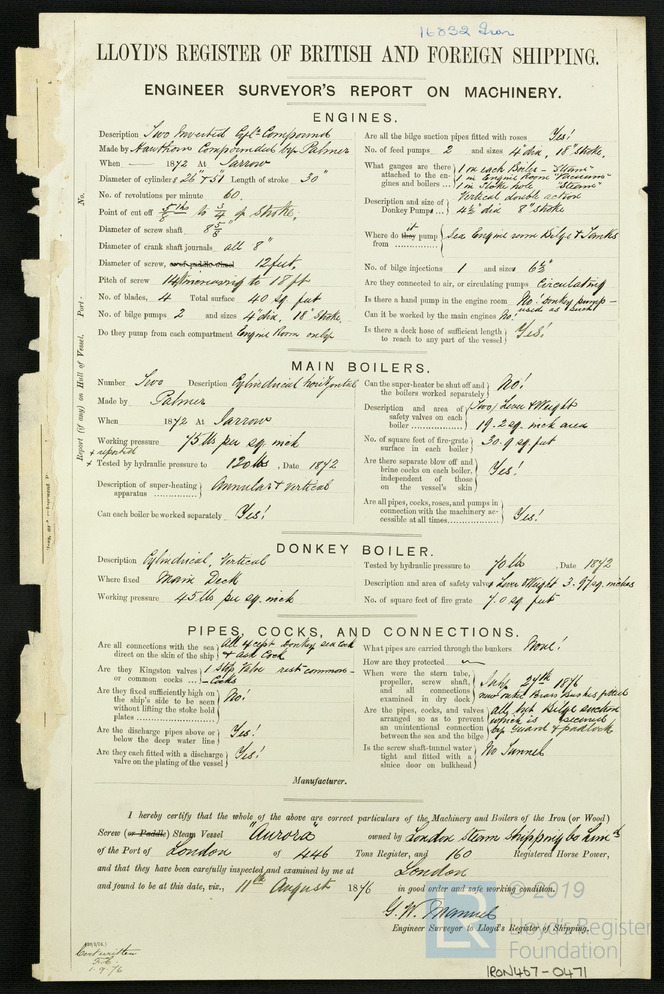 16832 Iron
LLOYD'S REGISTER OF BRITISH AND FOREIGN SHIPPING.
ENGINEER SURVEYOR'S REPORT ON MACHINERY.
ENGINES.
Description Two Inverted Cylr Compound
Made by Hawthorn Compounded by Palmer
When 1872 At Jarrow
Diameter of cylinders 26" & 51 Length of stroke 30"
No. of revolutions per minute 60.
Point of cut off 5/8 to 3/4 of stroke,
Diameter of screw shaft 8 5/8
Diameter of crank shaft journals all 8"
Diameter of screw, or of paddle wheel 12 feet,
Pitch of screw 14 increasing to 18 ft
No. of blades, 4 Total surface 40 sq feet
No. of bilge pumps 2 and sizes 4" dia, 18" stroke,
Do they pump from each compartment Engine Room only
Are all the bilge suction pipes fitted with roses Yes!
No. of feed pumps 2 and sizes 4" dia, 18" stroke,
What gauges are there attached to the engines and boilers ... 1 in each Boiler - Steam
1 in Engine Room "Vacuum"
1 in Stoke hole "Steam"
Description and size of Donkey Pumps ... Vertical double action
4½ dia 8" stroke
Where do they pump from it Sea Engine room Bilge & Tanks
No. of bilge injections 1 and sizes 6½"
Are they connected to air, or circulating pumps Circulating
Is there a hand pump in the engine room No! donkey pump -
used as such
Can it be worked by the main engines No!
Is there a deck hose of sufficient length to reach to any part of the vessel Yes!
MAIN BOILERS.
Number Two Description Cylindrical horizontal
Made by Palmer
When 1872 At Jarrow
Working pressure 75 lbs per sq. inch
+ reported
+ Tested by hydraulic pressure to 120 lbs, Date 1872
Description of super-heating apparatus Annular & vertical
Can each boiler be worked separately Yes!
Can the super-heater be shut off and the boilers worked separately No!
Description and area of safety valves on each boiler (Two) Lever & Weight
19.2 sq. inch area
No. of square feet of fire-grate surface in each boiler 30.9 sq. feet
Are there separate blow off and brine cocks on each boiler, independent of those on the vessel's skin Yes!
Are all pipes, cocks, roses, and pumps in connection with the machinery accessible at all times Yes!
DONKEY BOILER.
Description Cylindrical, Vertical
Where fixed Main Deck
Working pressure 45 lbs per sq. inch
Tested by hydraulic pressure to 70 lbs, Date 1872
Description and area of safety valves Lever & Weight 3.97 sq. inches
No. of square feet of fire grate 7.0 sq feet
PIPES, COCKS, AND CONNECTIONS.
Are all connections with the sea direct on the skin of the ship All except Donkey sea cock
& Ash Cock
Are they Kingston valves or common cocks 1 Stop Valve rest common -
- Cocks
Are they fixed sufficiently high on the ship's side to be seen without lifting the stoke hold plates No!
Are the discharge pipes above or below the deep water line Yes!
Are they each fitted with a discharge valve on the plating of the vessel Yes!
What pipes are carried through the bunkers None!
How are they protected
When were the stern tube, propeller, screw shaft, and all connections examined in dry dock July 27th 1876
new outer Brass Bushes fitted
Are the pipes, cocks, and valves arranged so as to prevent an unintentional connection between the sea and the bilge All, but Bilge suction
which is secured
by Guard & padlock
Is the screw shaft-tunnel water tight and fitted with a sluice door on bulkhead No Tunnel
Manufacturer.
I hereby certify that the whole of the above are correct particulars of the Machinery and Boilers of the Iron (or Wood)
Screw (or Paddle) Steam Vessel "Aurora" owned by London Steam Shipping Co Limd
of the Port of London of 446 Tons Register, and 160 Registered Horse Power,
and that they have been carefully inspected and examined by me at London
and found to be at this date, viz., 11th August 1876 in good order and safe working condition.
G. W. Manuel
Engineer Surveyor to Lloyd's Register of Shipping.
Cert written
1.9.76
Report (if any) on Hull of Vessel. Port - No.
LR
© 2019
Lloyd's Register
Foundation
IRON467-0471